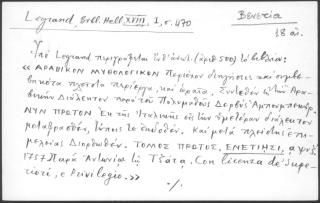 Legrand, Bibl. Hell. XVIII, I, σ. 470
Βενετία
18 αἰ.
Ὑπὸ Legrand περιγράφεται ὑπ' ἀριθ. (ἀριθ. 500) τὸ βιβλίον:
«ΑΡΑΒΙΚΟΝ ΜΥΘΟΛΟΓΙΚΟΝ Περιέχον διηγήσεις καὶ συμβε-
βηκότα πλεῖστα περίεργα, καὶ ὡραῖα, Συντεθὲν εἰς τὴν Ἀρα-
βικὴν Διάλεκτον παρὰ τοῦ Πολυμαθοῦς Δερβὶς
ΝΥΝ ΠΡΩΤΟΝ Ἐκ τῆς Ἰταλικῆς εἰς τὴν ἡμετέραν διάλεκτον
μεταβρασθὲν, τύποις τε ἐκδοθέν. Καὶ μετὰ πλείστης ἐπι-
μελείας Διορθωθέν. ΤΟΜΟΣ ΠΡΩΤΟΣ, ΕΝΕΤΙΗΣΙ, αψνζ
1757 Παρὰ Ἀντωνίῳ τῷ Τζάτᾳ. Con licenza de' Supe-
riori, e Privilegio.»
./.